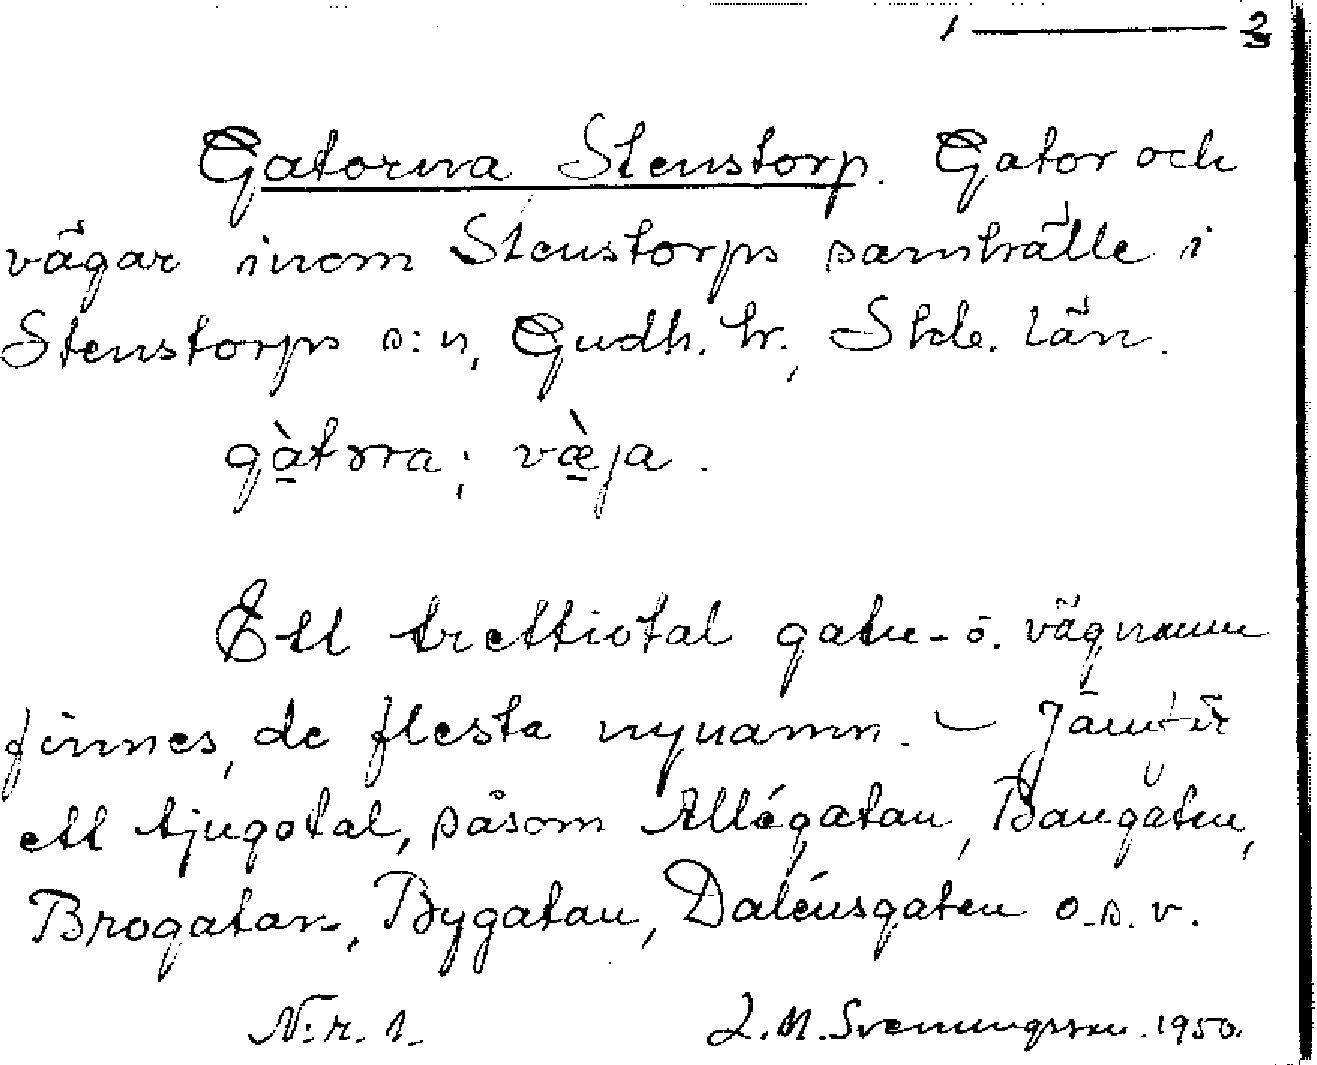 1 — 3
Gatorna Stenstorp. Gator och
vägar inom Stenstorps samhälle i
Stenstorps s:n, Gudh. hr., Skb. län.
gàtɤra; væ̀ja.
Ett trettiotal gatu- o. vägnamn
finnes, de flesta nynamn. – Jämför
ett tjugotal, såsom Allégatan, Bangatan,
Brogatan, Bygatan, Dalénsgatan o.s.v.
N:r. 1. L.M. Svenungsson. 1950.